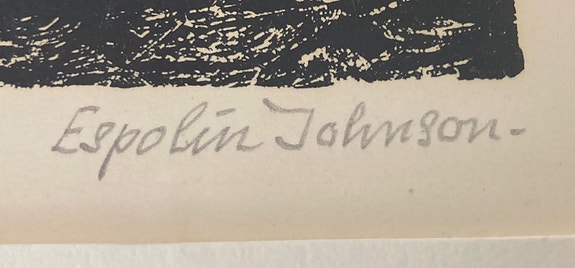 Espolin Johnson-